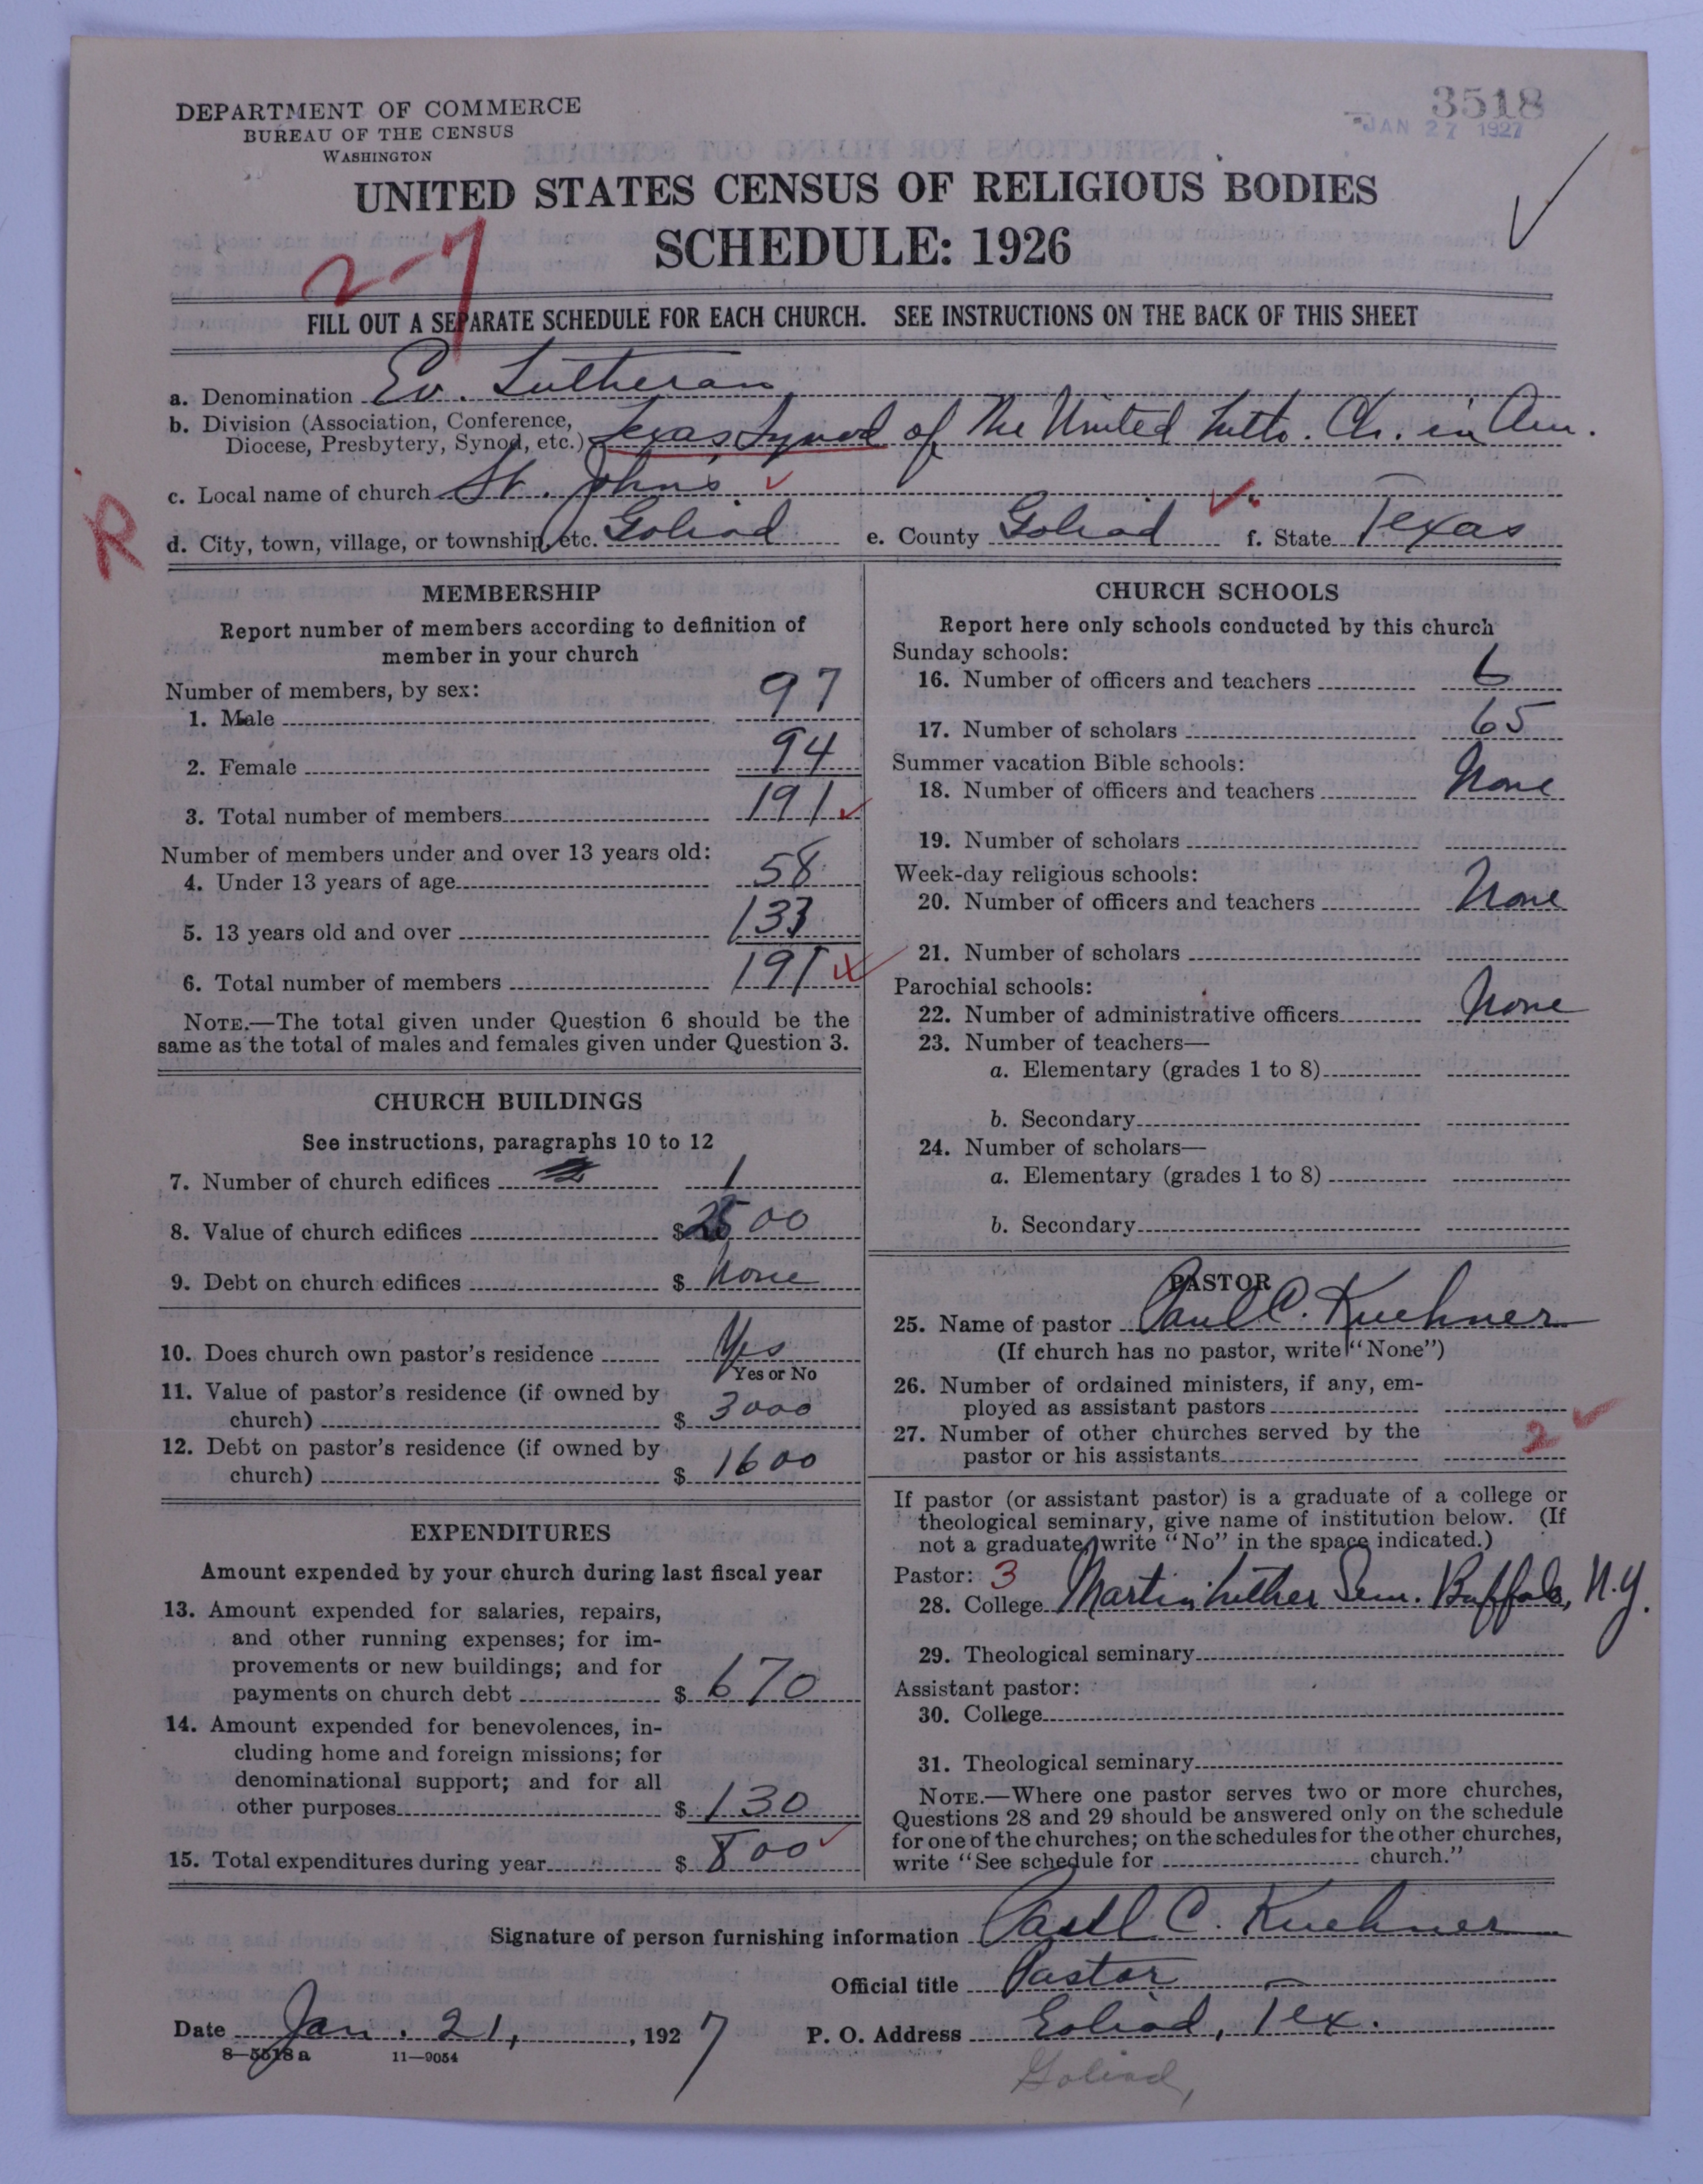 DEPARTMENT OF COMMERCE
BUREAU OF THE CENSUS
WASHINGTON
3518
JAN 27 1927
UNITED STATES CENSUS OF RELIGIOUS BODIES
SCHEDULE: 1926
2-7
FILL OUT A SEPARATE SCHEDULE FOR EACH CHURCH. SEE INSTRUCTIONS ON THE BACK OF THIS SHEET
a. Denomination Ev. Lutheran
b. Division (Association, Conference,
Diocese, Presbytery, Synod, etc.) Texas Synod of the United Luth. Ch. in Am.
c. Local name of church St. Johns
R
d. City, town, village, or township, etc. Goliad e. County Goliad f. State Texas
MEMBERSHIP
Report number of members according to definition of
member in your church
Number of members, by sex:
1. Male 97
2. Female 94
3. Total number of members 191
Number of members under and over 13 years old:
4. Under 13 years of age 58
5. 13 years old and over 133
6. Total number of members 191
NOTE.—The total given under Question 6 should be the
same as the total of males and females given under Question 3.
CHURCH BUILDINGS
See instructions, paragraphs 10 to 12
7. Number of church edifices 1
8. Value of church edifices $ 2500
9. Debt on church edifices $ None
10. Does church own pastor's residence Yes
Yes or No
11. Value of pastor's residence (if owned by
church) $ 3000
12. Debt on pastor's residence (if owned by
church) $ 1600
EXPENDITURES
Amount expended by your church during last fiscal year
13. Amount expended for salaries, repairs,
and other running expenses; for im-
provements or new buildings; and for
payments on church debt $ 670
14. Amount expended for benevolences, in-
cluding home and foreign missions; for
denominational support; and for all
other purposes $ 130
15. Total expenditures during year $ 800
CHURCH SCHOOLS
Report here only schools conducted by this church
Sunday schools:
16. Number of officers and teachers 6
17. Number of scholars 65
Summer vacation Bible schools:
18. Number of officers and teachers None
19. Number of scholars
Week-day religious schools:
20. Number of officers and teachers None
21. Number of scholars
Parochial schools:
22. Number of administrative officers None
23. Number of teachers—
a. Elementary (grades 1 to 8)
b. Secondary
24. Number of scholars—
a. Elementary (grades 1 to 8)
b. Secondary
PASTOR
25. Name of pastor Paul C. Kuehner
(If church has no pastor, write "None")
26. Number of ordained ministers, if any, em-
ployed as assistant pastors
27. Number of other churches served by the
pastor or his assistants 2
If pastor (or assistant pastor) is a graduate of a college or
theological seminary, give name of institution below. (If
not a graduate, write "No" in the space indicated.)
Pastor: 3
28. College Martin Luther Sem. Buffalo, N.Y.
29. Theological seminary
Assistant pastor:
30. College
31. Theological seminary
NOTE.—Where one pastor serves two or more churches,
Questions 28 and 29 should be answered only on the schedule
for one of the churches; on the schedules for the other churches,
write "See schedule for church."
Signature of person furnishing information Paul C. Kuehner
Official title Pastor
Date Jan. 21, 1927 P. O. Address Goliad, Tex.
8—5518 a 11—9054
Goliad,